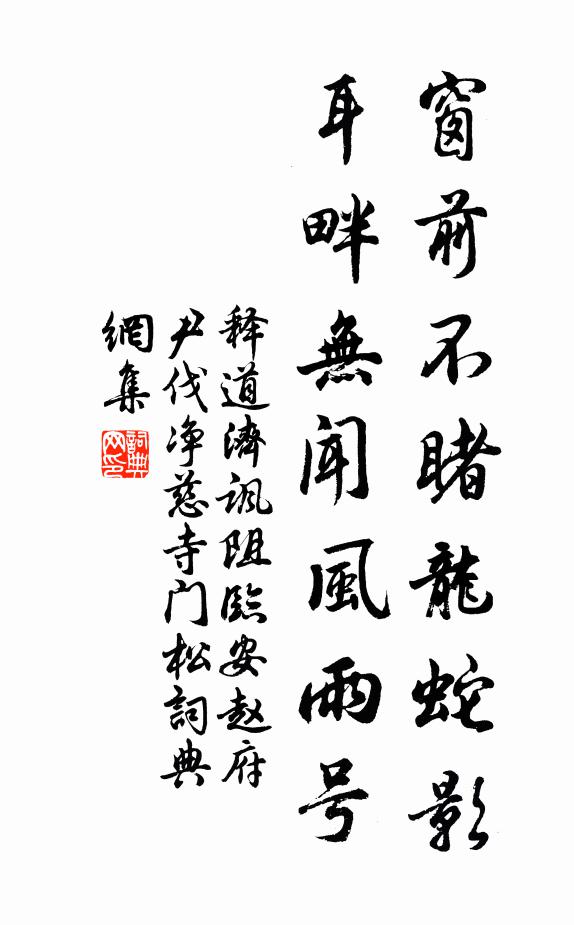 窗前不睹龍蛇影
耳畔無聞風雨号
释道濟諷阻臨安赵府
尹伐净慈寺门松詞典
網集
詞典
网印